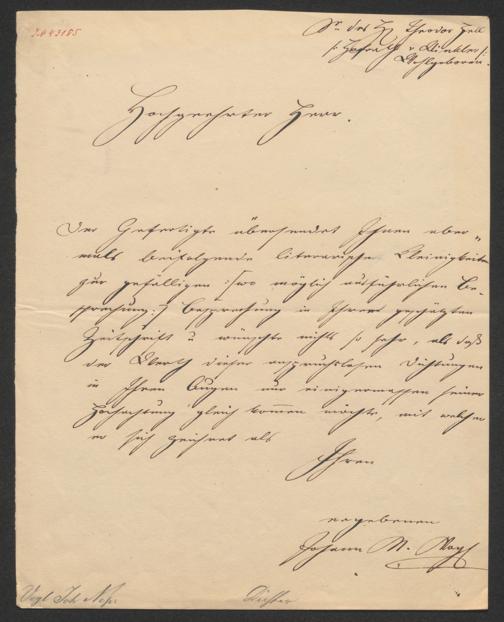 Sr. des H. Theodor Hell
/: Hofrath v. Winkler :/
Wohlgeboren.
Hochgeehrter Herr.
Der Gefertigte übersendet Ihnen aber-
mals beifolgende literarische Kleinigkeiten
zur gefälligen /: wo möglich ausführlichen Be-
sprechung :/ Besprechung in Ihrer geschätzten
Zeitschrift u wünschte nichts so sehr, als daß
der Werth dieser anspruchslosen Dichtungen
in Ihren Augen nur einigermassen seiner
Hochachtung gleich kommen möchte, mit welcher
er sich zeichnet als
Ihren
ergebenen
Johann N. Vogl
Vogl Joh Nep.
Dichter